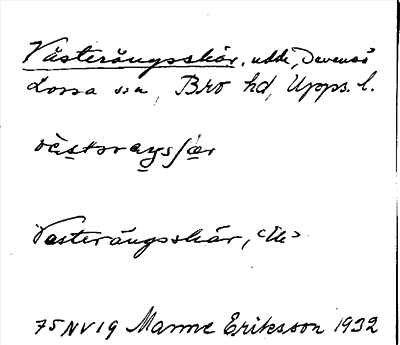 Västerängsskär, udde, Dävensö
Lossa sn, Bro hd, Upps. l.
västəraŋsʃær
Västerängsskär, <Ek>
75NV19 Manne Eriksson 1932